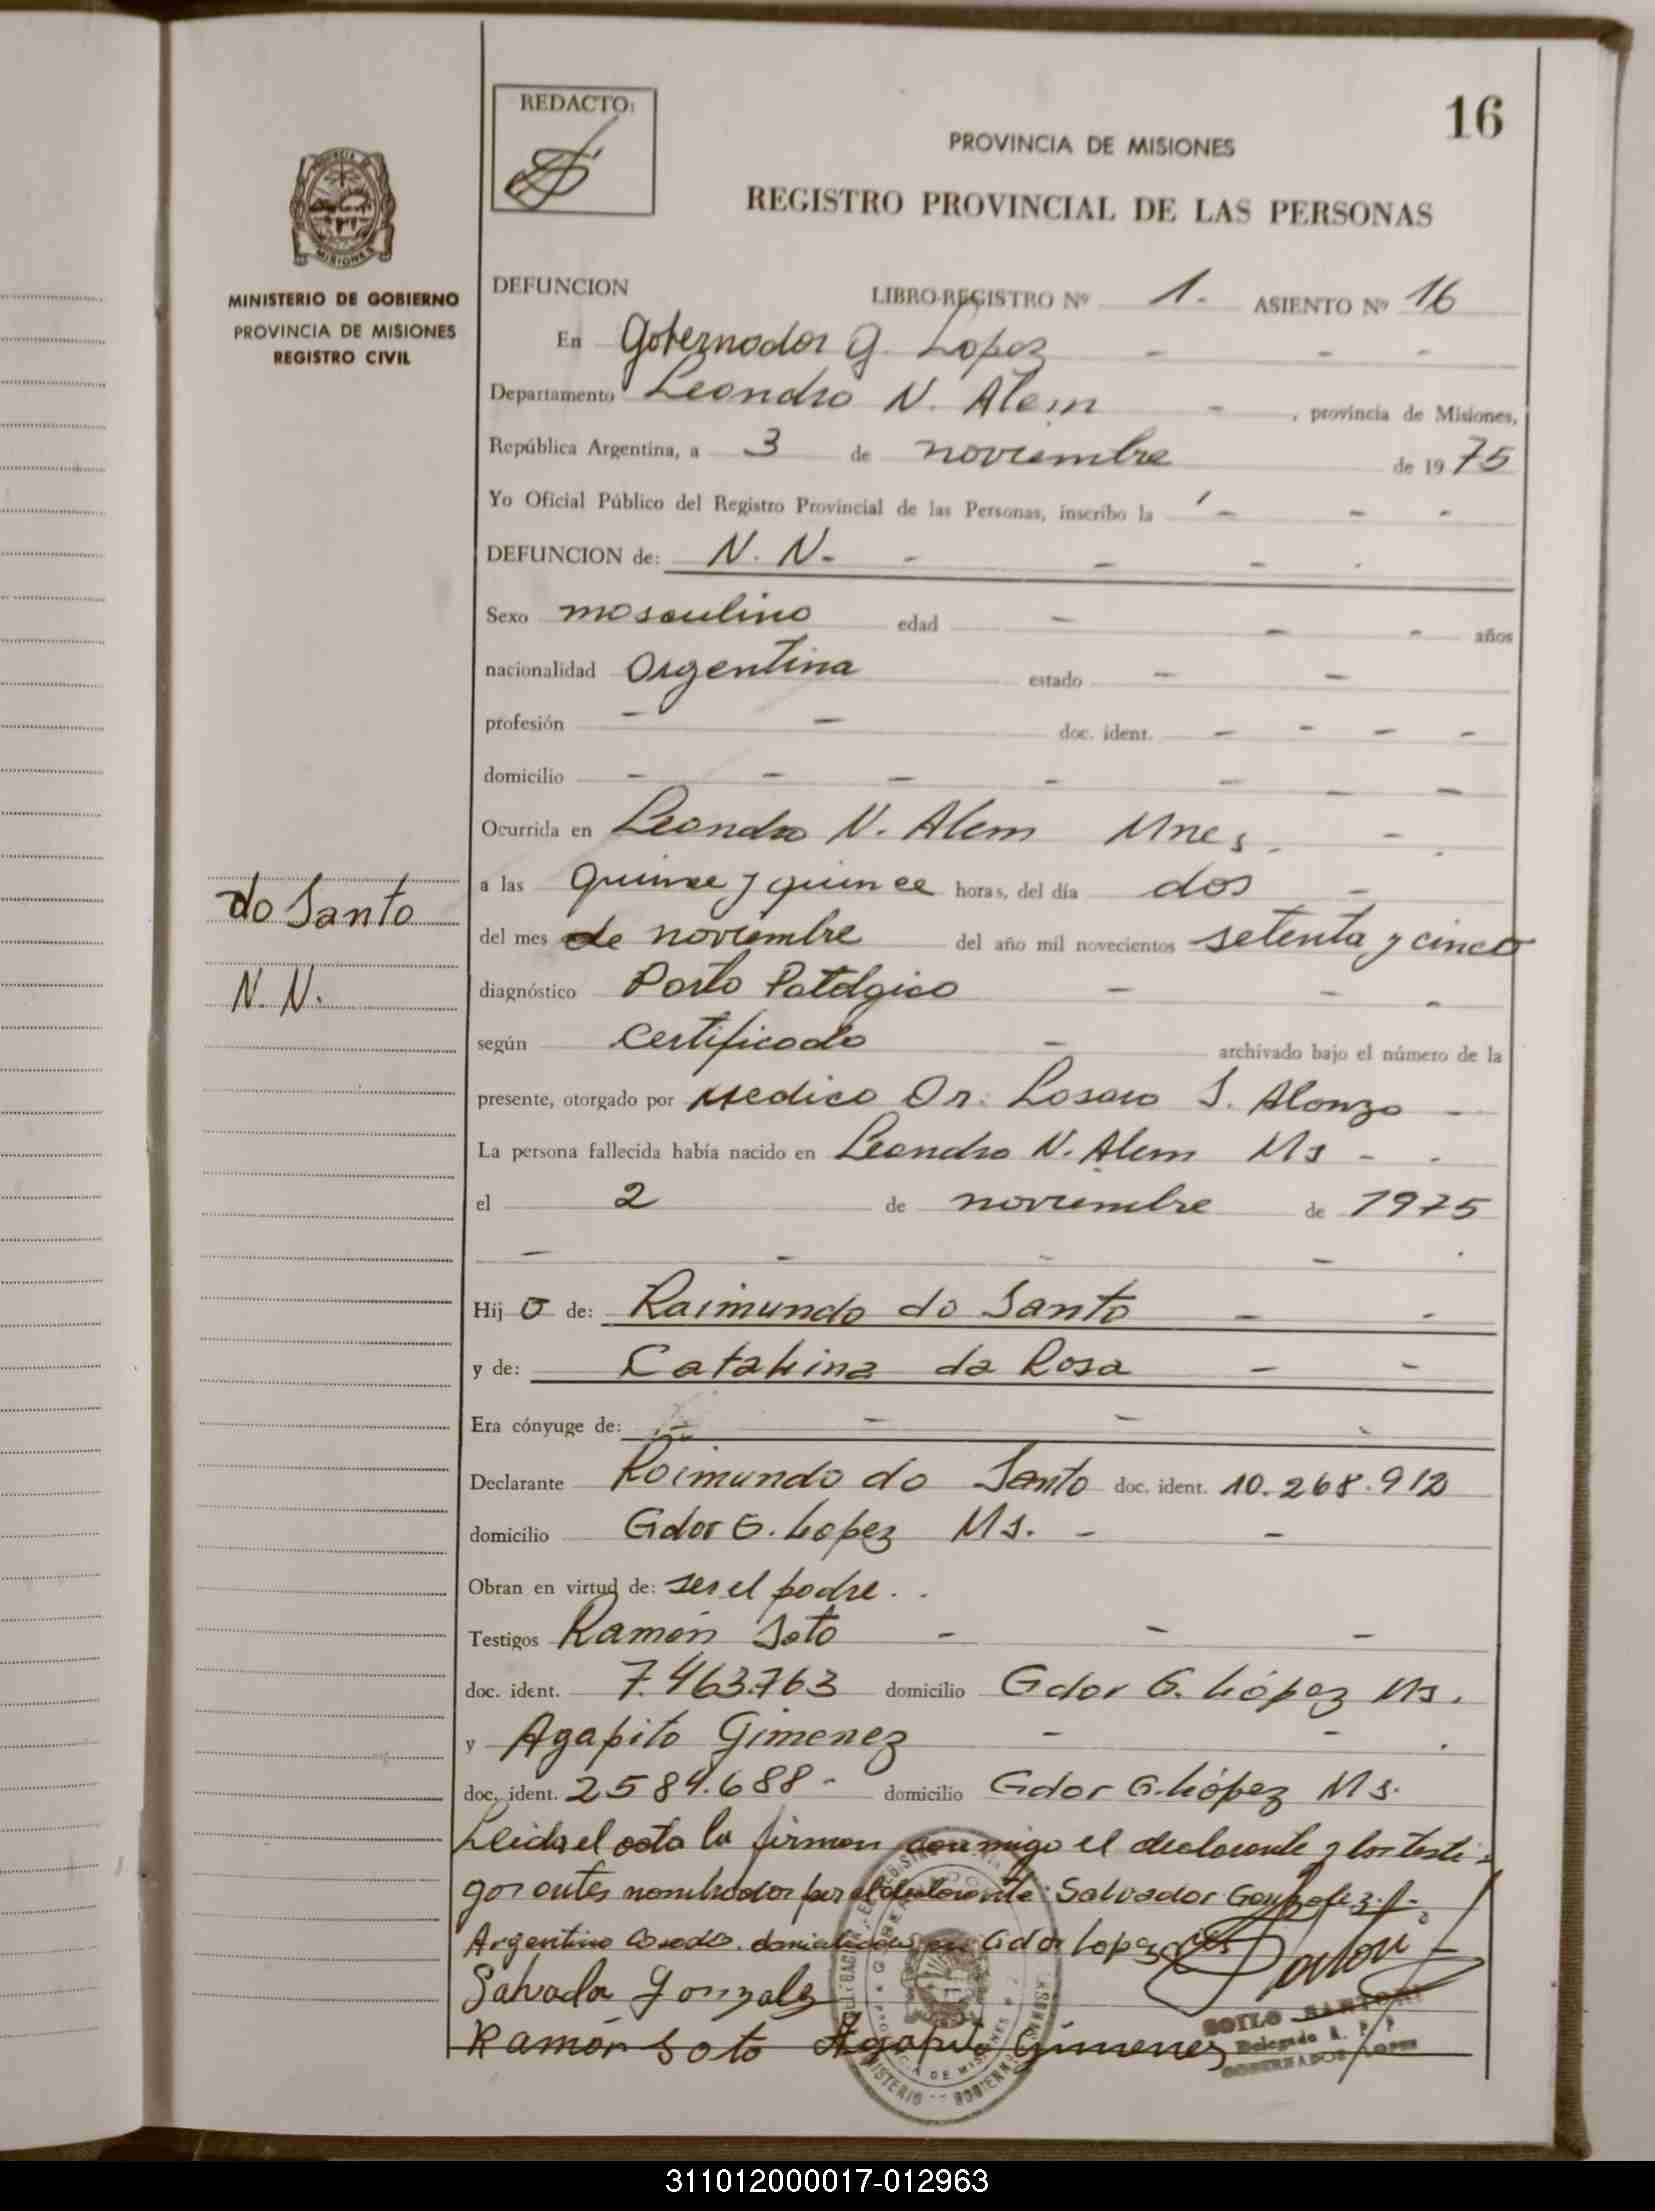 16
REDACTO:
PROVINCIA DE MISIONES
REGISTRO PROVINCIAL DE LAS PERSONAS
MISIONES
MINISTERIO DE GOBIERNO
PROVINCIA DE MISIONES
REGISTRO CIVIL
DEFUNCION LIBRO-REGISTRO Nº 1. ASIENTO Nº 16
En Gobernador G. Lopez - - -
Departamento Leandro N. Alem - , provincia de Misiones,
República Argentina, a 3 de noviembre de 1975
Yo Oficial Público del Registro Provincial de las Personas, inscribo la - - -
DEFUNCION de: N. N. - - - -
Sexo masculino edad - - - años
nacionalidad Argentina estado - -
profesión - - doc. ident. - - - -
domicilio - - - - - - -
Ocurrida en Leandro N. Alem Mnes. -
a las quince y quince horas, del día dos -
do Santo
N. N.
del mes de noviembre del año mil novecientos setenta y cinco
diagnóstico Parto Patolgico - - -
según certificado - archivado bajo el número de la
presente, otorgado por Medico Dr. S. Alonzo -
La persona fallecida había nacido en Leandro N. Alem Ms - -
el 2 de noviembre de 1975
- - - - -
Hij o de: Raimundo do Santo - -
y de: Catahina da Rosa - -
Era cónyuge de: - - - -
Declarante Raimundo do Santo doc. ident. 10.268.912
domicilio Gdor G. Lopez Ms. - -
Obran en virtud de: ser el padre. .
Testigos Ramón Soto - - -
doc. ident. 7.463.763 domicilio Gdor G. López Ms.
y Agapito Gimenez - - .
doc. ident. 2584.688 - domicilio Gdor G. López Ms.
Leida el acta la firman conmigo el declarante y los testi-
gos antes nombrados por el declarante: Salvador Gonzalez.
Argentino Casado. domiciliado en Gdor Lopez
Salvador Gonzalez
Ramón Soto Agapito Gimenez
SOILO SARTORI
Delegado R. P. P.
GOBERNADOR LOPEZ
311012000017-012963